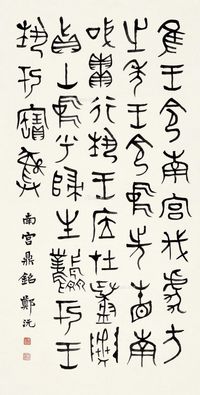 隹王令南宮伐虎方
之年王令中先省南
或貫行埶王应在
山中乎歸生鳳于王
埶于寶彝
南宮鼎銘 鄭沅